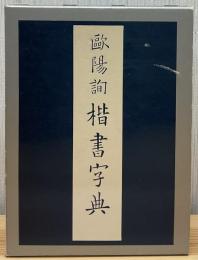 歐陽詢楷書字典